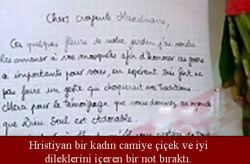 Chers croyants Musulmans,
Ces quelques fleurs de notre jardin j'ai voulu
les amener à vos mosquées afin d'honorer ces jours
si importants pour vous, en espérant très fort ne
pas faire un geste qui choquerait vos Traditions
Merci pour le témoignage que vous donnez au monde
que Dieu Seul est Adorable.
Hristiyan bir kadın camiye çiçek ve iyi
dileklerini içeren bir not bıraktı.